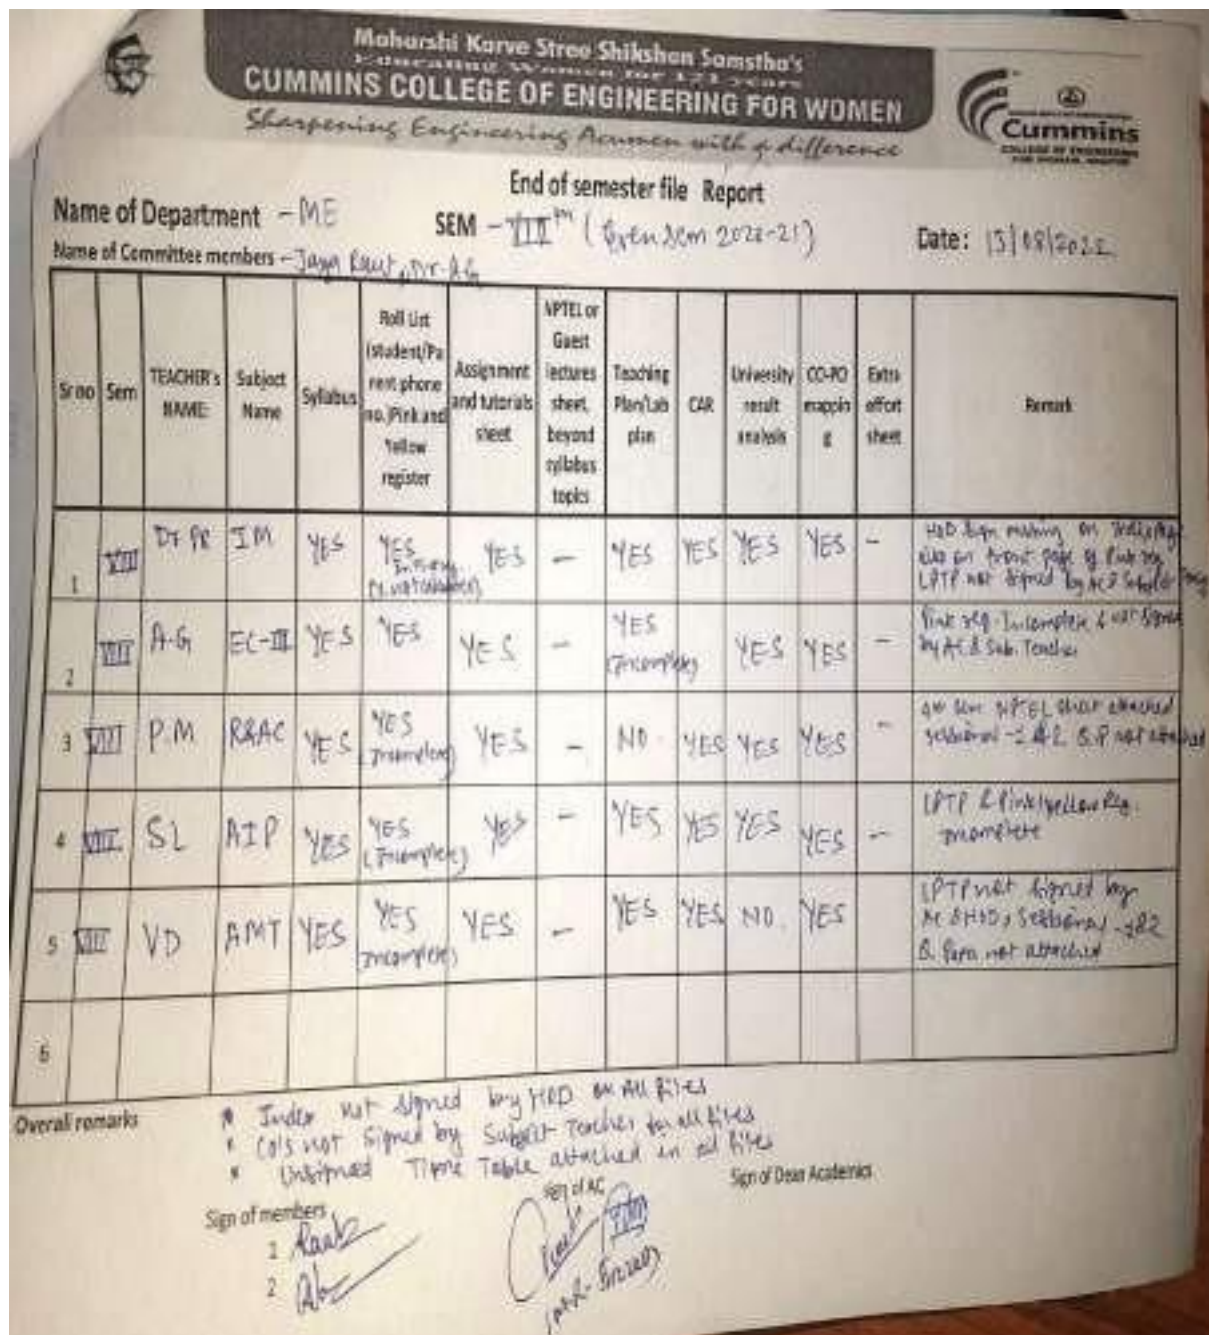 Maharshi Karve Stree Shikshan Samstha's
CUMMINS COLLEGE OF ENGINEERING FOR WOMEN
Sharpening Engineering Acumen with a difference
Cummins
COLLEGE OF ENGINEERING
End of semester file Report
Name of Department - ME
SEM - VIIth (
sem 2020-21)
Date: 13/08/2022
Name of Committee members - Jaya Raut, Dr. A.G
Sr no Sem TEACHER's NAME: Subject Name Syllabus Roll List (student/Parent phone no. Pink and Yellow register Assignment and tutorials sheet NPTEL or Guest lectures sheet, beyond syllabus topics Teaching Plan/Lab plan CAR University result analysis CO-PO mapping Extra effort sheet Remark
1 VII Dr PR IM YES YES YES - YES YES YES YES -
HOD sign missing on Index Page
also on front page of Pink reg
LPTP not signed by AC & Subject
2 VII A-G EC-III YES YES YES - YES (Incomplete) YES YES -
Pink reg. Incomplete & not signed
by AC & Sub. Teacher
3 VII P.M R&AC YES YES (Incomplete) YES - NO. YES YES YES -
NPTEL sheet attached
sessional - 1 & 2 Q.P not attached
4 VII SL AIP YES YES (Incomplete) YES - YES YES YES YES -
LPTP & Pink/yellow Reg.
Incomplete
5 VII VD AMT YES YES (Incomplete) YES - YES YES NO. YES
LPTP not signed by
AC & HOD, Sessional
not attached
6
Overall remarks
* Index not signed by HOD on All Files
* CO's not signed by Subject Teacher for all files
* Unsigned Time Table attached in all files
Sign of members
Sign of AC
Sign of Dean Academics
1 Raut
2